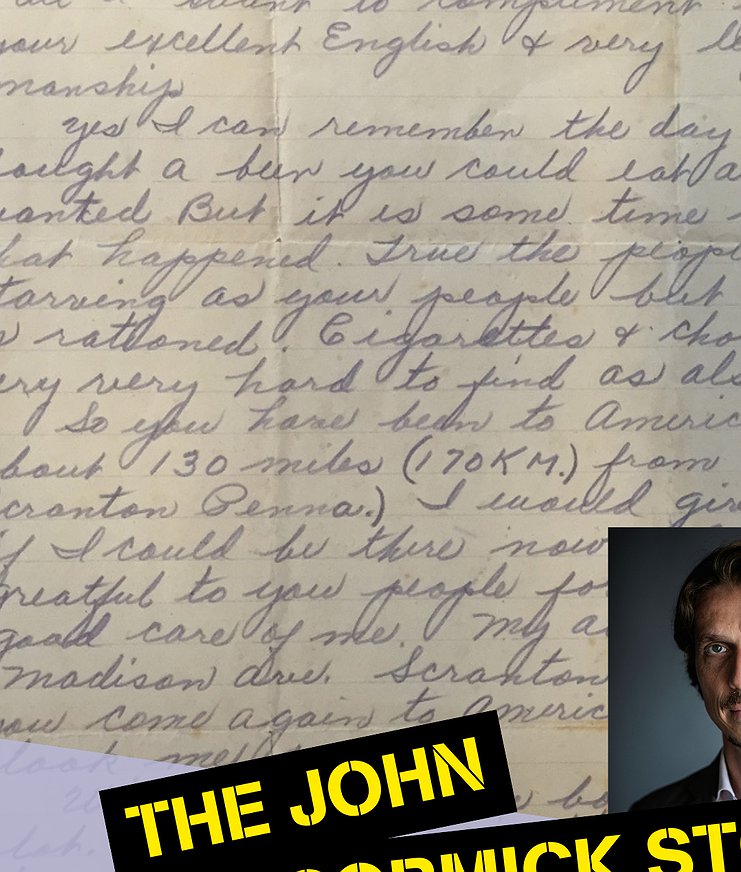 to compliment
your excellent English & very
manship
yes I can remember the day
ought a bun you could eat a
anted But it is some time
hat happened. True the people
tarving as your people but
rationed. Cigarettes & cho
ery very hard to find as als
So you have been to Americ
bout 130 miles (170KM.) from
cranton Penna.) I would give
if I could be there now
greatful to you people fo
good care of me. My a
Madison ave. Scranton
you come again to Americ
look me
THE JOHN
CORMICK STO